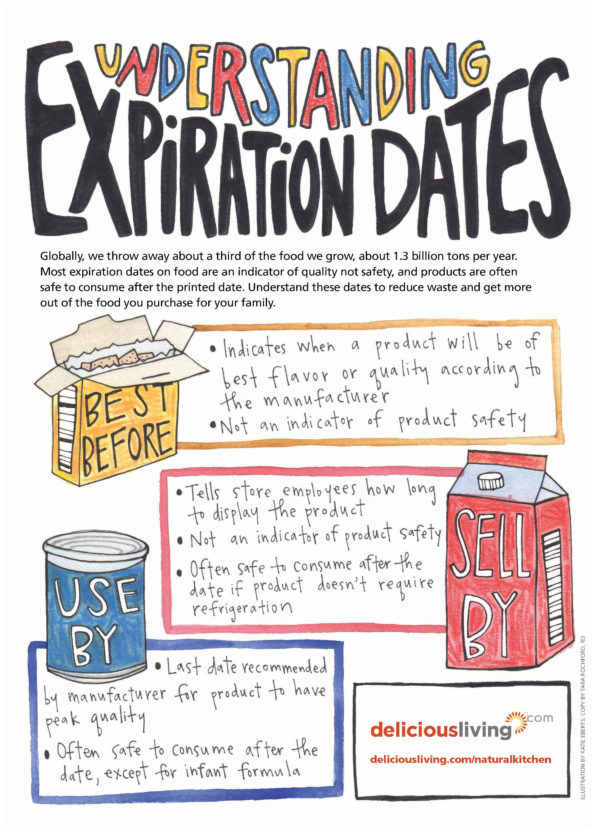 UNDERSTANDING
EXPIRATION DATES
Globally, we throw away about a third of the food we grow, about 1.3 billion tons per year.
Most expiration dates on food are an indicator of quality not safety, and products are often
safe to consume after the printed date. Understand these dates to reduce waste and get more
out of the food you purchase for your family.
BEST
BEFORE
• Indicates when a product will be of
best flavor or quality according to
the manufacturer
• Not an indicator of product safety
SELL
BY
• Tells store employees how long
to display the product
• Not an indicator of product safety
• Often safe to consume after the
date if product doesn't require
refrigeration
USE
BY
• Last date recommended
by manufacturer for product to have
peak quality
• Often safe to consume after the
date, except for infant formula
deliciousliving.com
deliciousliving.com/naturalkitchen
ILLUSTRATION BY KATIE EBERTS; COPY BY TARA ROCHFORD, RD